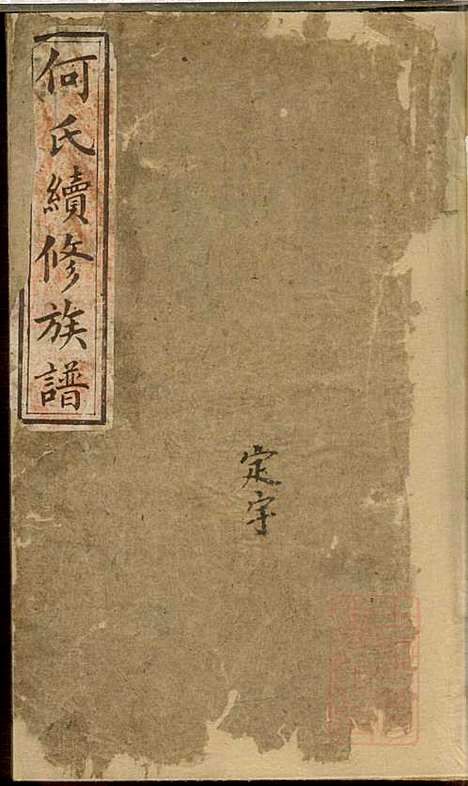 何氏續修族譜
定字